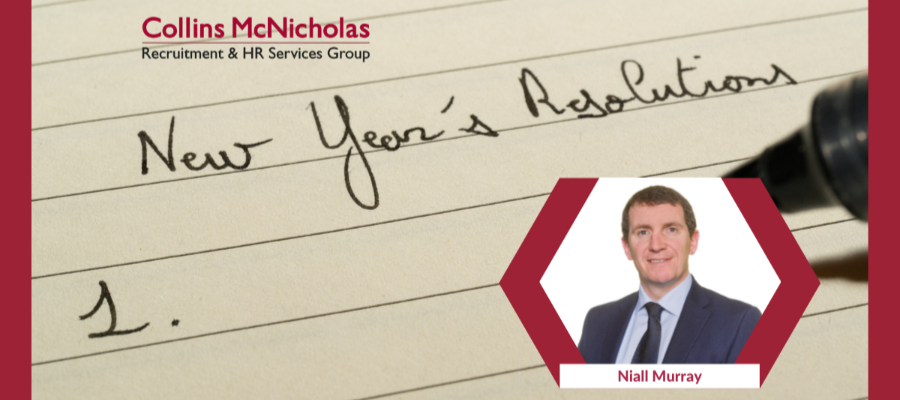 Collins McNicholas
Recruitment & HR Services Group
New Year's Resolutions
1.
Niall Murray